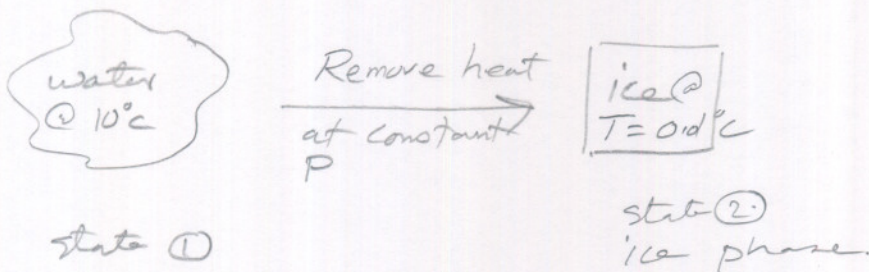 water
@ 10°C
Remove heat
at constant
P
ice @
T = 0.1°C
state ①
state ②
ice phase.